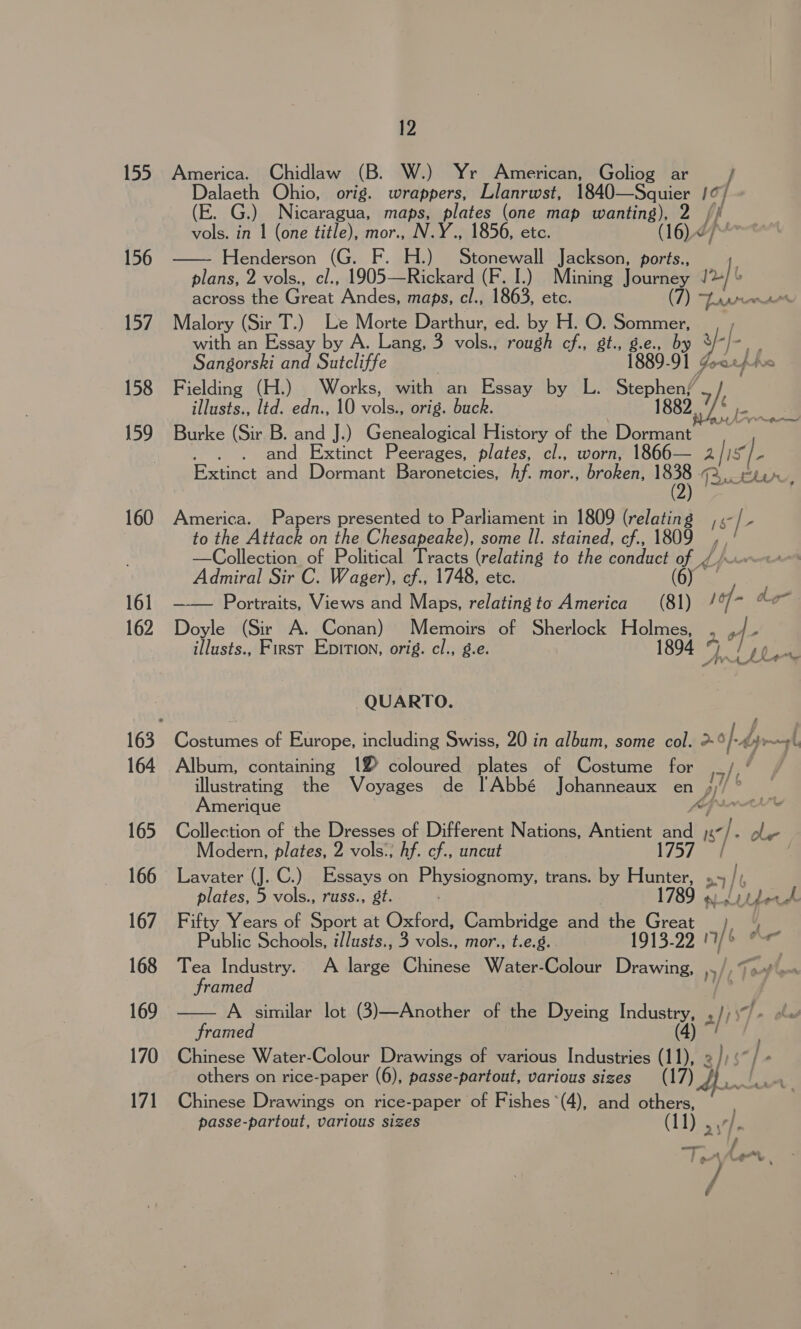 12
155 America. Chidlaw (B. W.) Yr American, Goliog ar
Dalaeth Ohio, orig. wrappers, Llanrwst, 1840—Squier
(E. G.) Nicaragua, maps, plates (one map wanting), 2
vols. in 1 (one title), mor., N.Y., 1856, etc. (16)
156 —— Henderson (G. F. H.) Stonewall Jackson, ports.,
plans, 2 vols., cl., 1905—Rickard (F. I.) Mining Journey
across the Great Andes, maps, cl., 1863, etc. (7)
157 Malory (Sir T.) Le Morte Darthur, ed. by H. O. Sommer,
with an Essay by A. Lang, 3 vols., rough cf., gt., g.e., by
Sangorski and Sutcliffe 1889-91
158 Fielding (H.) Works, with an Essay by L. Stephen,
illusts., ltd. edn., 10 vols., orig. buck. 1882
159 Burke (Sir B. and J.) Genealogical History of the Dormant
. . . and Extinct Peerages, plates, cl., worn, 1866— 2/15/-
Extinct and Dormant Baronetcies, hf. mor., broken, 1838
(2)
160 America. Papers presented to Parliament in 1809 (relating 15/-
to the Attack on the Chesapeake), some ll. stained, cf., 1809
—Collection of Political Tracts (relating to the conduct of
Admiral Sir C. Wager), cf., 1748, etc. (6)
161 —— Portraits, Views and Maps, relating to America (81) 10/- do
162 Doyle (Sir A. Conan) Memoirs of Sherlock Holmes,
illusts., First Edition, orig. cl., g.e. 1894
QUARTO.
163 Costumes of Europe, including Swiss, 20 in album, some col.
164 Album, containing 12 coloured plates of Costume for
illustrating the Voyages de l'Abbé Johanneaux en
Amerique
165 Collection of the Dresses of Different Nations, Antient and 15/- do
Modern, plates, 2 vols., hf. cf., uncut 1757
166 Lavater (J. C.) Essays on Physiognomy, trans. by Hunter,
plates, 5 vols., russ., gt. 1789
167 Fifty Years of Sport at Oxford, Cambridge and the Great
Public Schools, illusts., 3 vols., mor., t.e.g. 1913-22 17/6 do
168 Tea Industry. A large Chinese Water-Colour Drawing,
framed
169 —— A similar lot (3)—Another of the Dyeing Industry,
framed (4)
170 Chinese Water-Colour Drawings of various Industries (11),
others on rice-paper (6), passe-partout, various sizes (17)
171 Chinese Drawings on rice-paper of Fishes (4), and others,
passe-partout, various sizes (11)